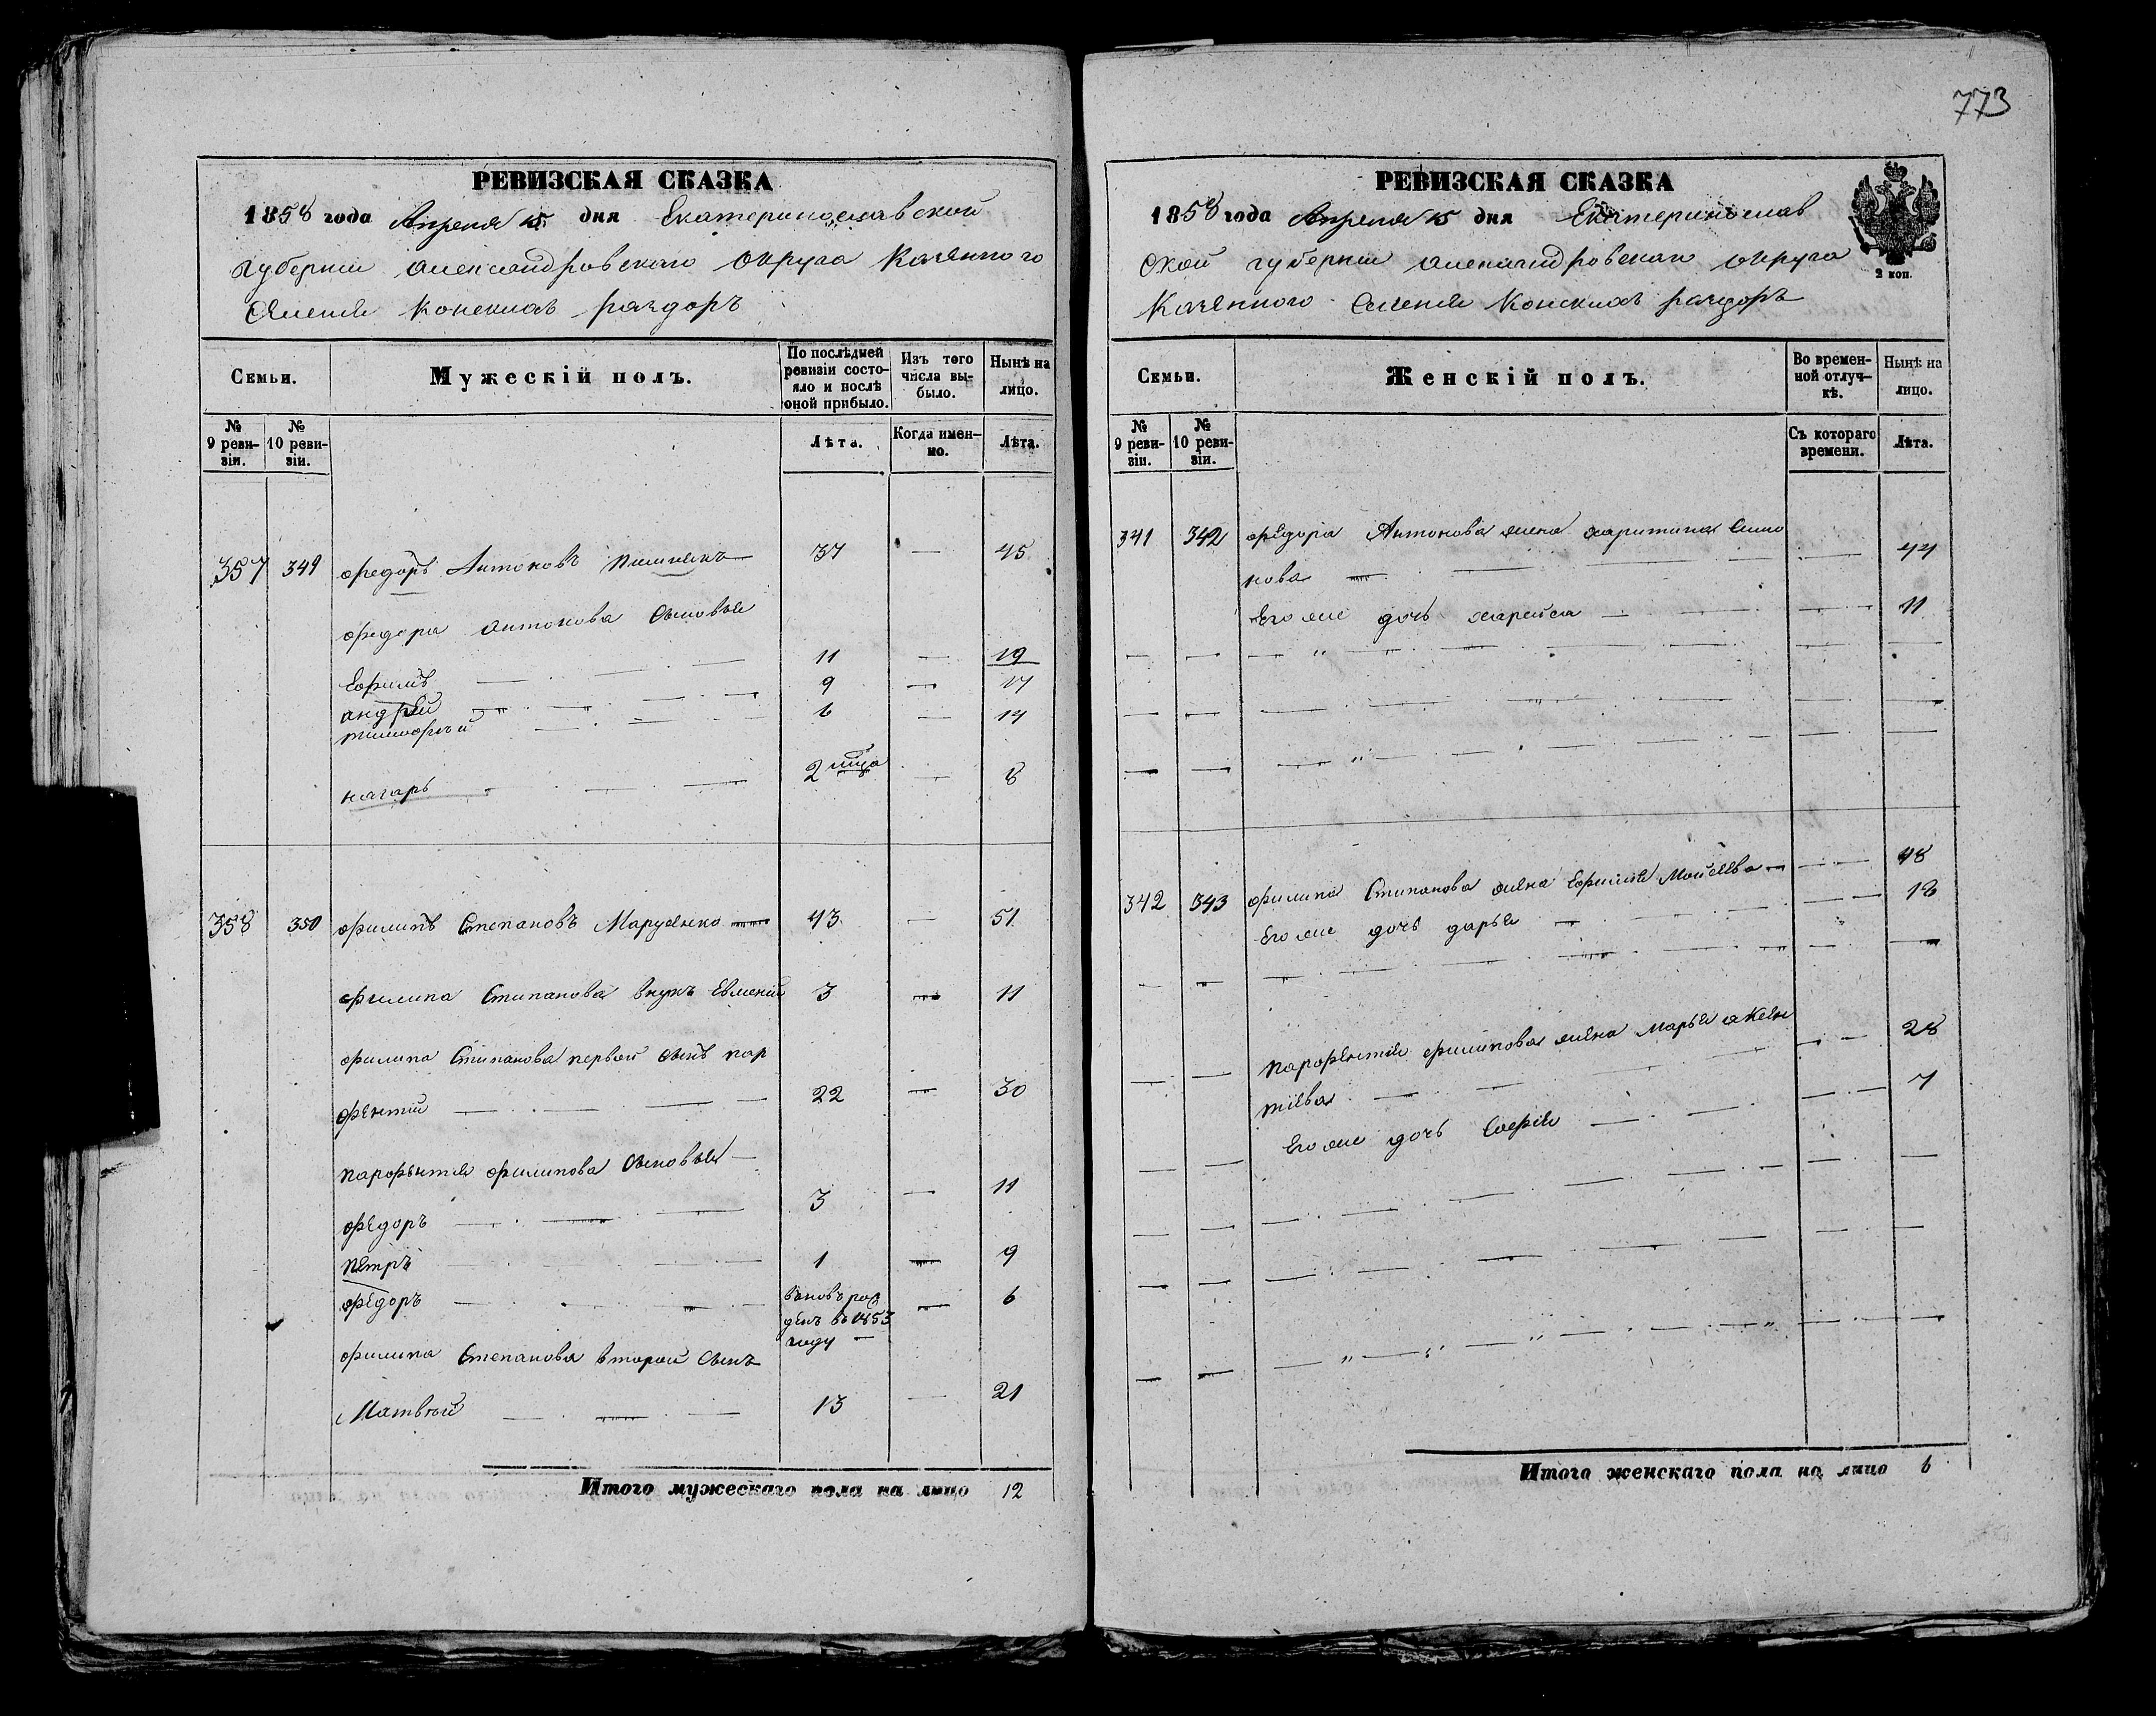 773
РЕВИЗСКАЯ СКАЗКА
1858 года Апреля 15 дня Екатеринославской
губернии Александровскаго Округа Казеннаго
Селения Конскихъ раздоръ
Семьи. Мужескій полъ. По послѣдней ревизіи состояло и послѣ оной прибыло. Изъ того числа выбыло. Нынѣ на лицо.
№ 9 ревизіи. № 10 ревизіи. Лѣта. Когда именно. Лѣта.
357 349 Федоръ Антоновъ 37 — 45
Федора Антонова Сыновья
Ефимъ 11 — 19
Андрей 9 — 17
Тимофѣй 6 — 14
Назаръ 2 — 8
358 350 Филипъ Степановъ Марусенко 43 — 51
Филипа Стипанова внукъ Евмений 3 — 11
Филипа Стипанова первой сынъ Пар
фентий 22 — 30
Парфентия Филипова Сыновья —
Федоръ 3 — 11
Петръ 1 — 9
Федоръ вновь рож — 6
денъ въ 1853
году —
Филипа Степанова второй Сынъ
Матвѣй 13 — 21
Итого мужескаго пола на лицо 12
РЕВИЗСКАЯ СКАЗКА
2 коп.
1858 года Апреля 15 дня Екатеринослав
Ской губернии Александровскаго округа
Казенного Селения Конскихъ раздоръ
Семьи. Женскій полъ. Во временной отлучкѣ. Нынѣ на лицо.
№ 9 ревизіи. № 10 ревизіи. Съ котораго времени. Лѣта.
341 342 Федора Антонова жена Харитина Симо
нова — 44
Его же дочь 11
342 343 Филипа Стипанова жена Ефимия Мойсеева — 48
Его же дочь Дарья — 18
Парфентия Филипова жена Марья Аксен
тиева — 28
Его же дочь София — 7
Итого женскаго пола на лицо 6